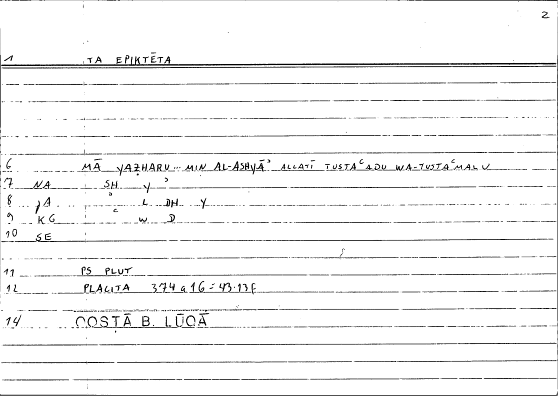 2
1 TA EPIKTĒTA
6 MĀ YAẒHARU... MIN AL-ASHYĀʾ ALLATĪ TUSTAʿADU WA-TUSTAʿMALU
7 NA SH Y ʾ
8 ʾ L DH Y
9 KG ʿ W D
10 SE
11 PS PLUT
12 PLACITA 374 a 16 = 43.13 f
14 QOSṬĀ B. LŪQĀ